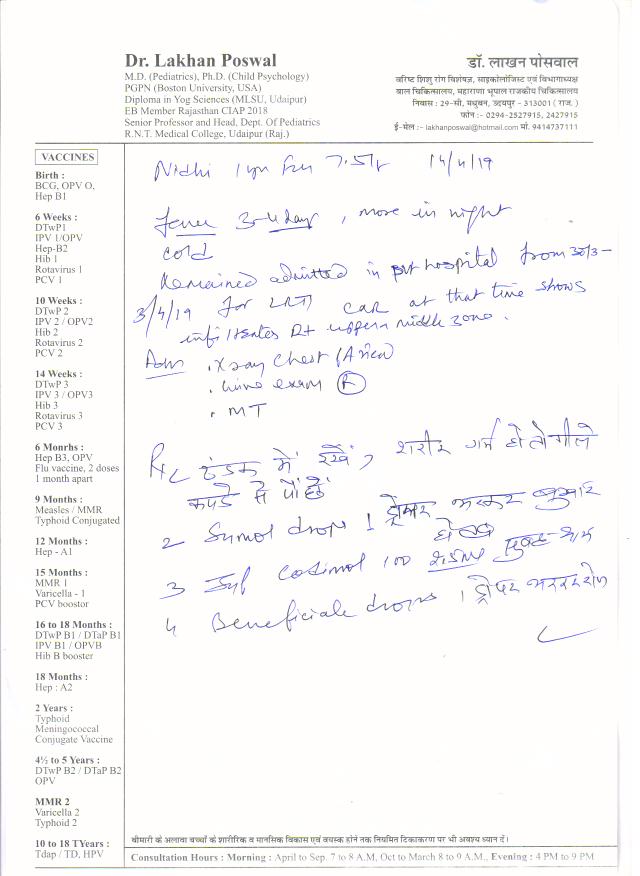 Dr. Lakhan Poswal
M.D. (Pediatrics), Ph.D. (Child Psychology)
PGPN (Boston University, USA)
Diploma in Yog Sciences (MLSU, Udaipur)
EB Member Rajasthan CIAP 2018
Senior Professor and Head, Dept. Of Pediatrics
R.N.T. Medical College, Udaipur (Raj.)
डॉ. लाखन पोसवाल
वरिष्ट शिशु रोग विशेषज्ञ, साइकोलोजिस्ट एवं विभागाध्यक्ष
बाल चिकित्सालय, महाराणा भूपाल राजकीय चिकित्सालय
निवास : 29-सी, मधुबन, उदयपुर - 313001 ( राज. )
फोन :- 0294-2527915, 2427915
ई-मेल :- lakhanposwal@hotmail.com मो. 9414737111
VACCINES
Birth :
BCG, OPV O,
Hep B1
6 Weeks :
DTwP1
IPV 1/OPV
Hep-B2
Hib 1
Rotavirus 1
PCV 1
10 Weeks :
DTwP 2
IPV 2 / OPV2
Hib 2
Rotavirus 2
PCV 2
14 Weeks :
DTwP 3
IPV 3 / OPV3
Hib 3
Rotavirus 3
PCV 3
6 Monrhs :
Hep B3, OPV
Flu vaccine, 2 doses
1 month apart
9 Months :
Measles / MMR
Typhoid Conjugated
12 Months :
Hep - A1
15 Months :
MMR 1
Varicella - 1
PCV boostor
16 to 18 Months :
DTwP B1 / DTaP B1
IPV B1 / OPVB
Hib B booster
18 Months :
Hep : A2
2 Years :
Typhoid
Meningococcal
Conjugate Vaccine
4½ to 5 Years :
DTwP B2 / DTaP B2
OPV
MMR 2
Varicella 2
Typhoid 2
10 to 18 TYears :
Tdap / TD, HPV
Nidhi 1 14/4/19
Fever 3-4 days, more in night
cold
Remained admitted in hospital from 30/3 -
3/4/19 for LRTI at that time shows
infiltrates Rt upper n middle zone.
Adv . Xray Chest (
. Urine exam
. MT
ठंडक में रखें, शरीर गर्म हो तो गीले
कपडे से पोंछें
2 Sumol drops 1 ड्रॉपर भरकर बुखार
3 Syp 100 सुबह शाम
4 Beneficiale drops 1 ड्रॉपर भरकर रोज
बीमारी के अलावा बच्चों के शारीरिक व मानसिक विकास एवं वयस्क होने तक नियमित टिकाकरण पर भी अवश्य ध्यान दें।
Consultation Hours : Morning : April to Sep. 7 to 8 A.M, Oct to March 8 to 9 A.M., Evening : 4 PM to 9 PM